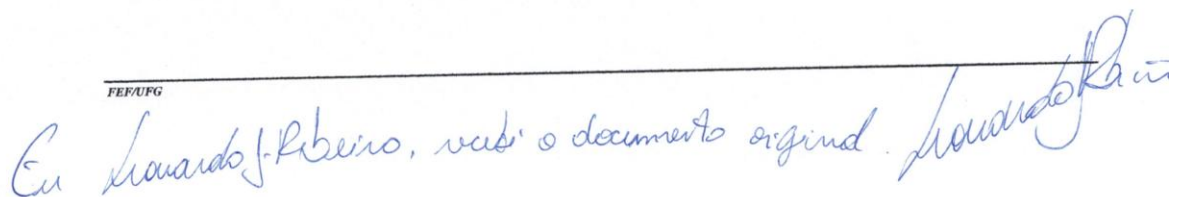 FEF/UFG
Eu Leonardo J. Ribeiro, recebi o documento original. Leonardo Ribeiro